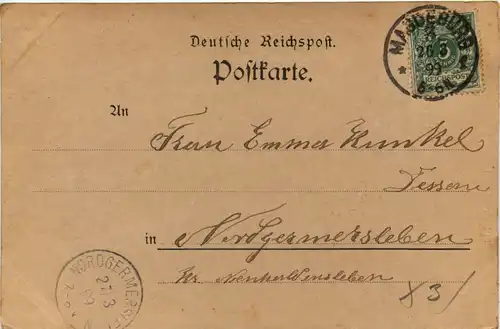 Deutsche Reichspost.
Postkarte.
MAGDEBURG
26 3
99
5-6N
An
Frau Emma Kunkel
in Nordgermersleben
Kr. Neuhaldensleben
NORDGERMERSLEBEN
27/3
99
7-8
X3/